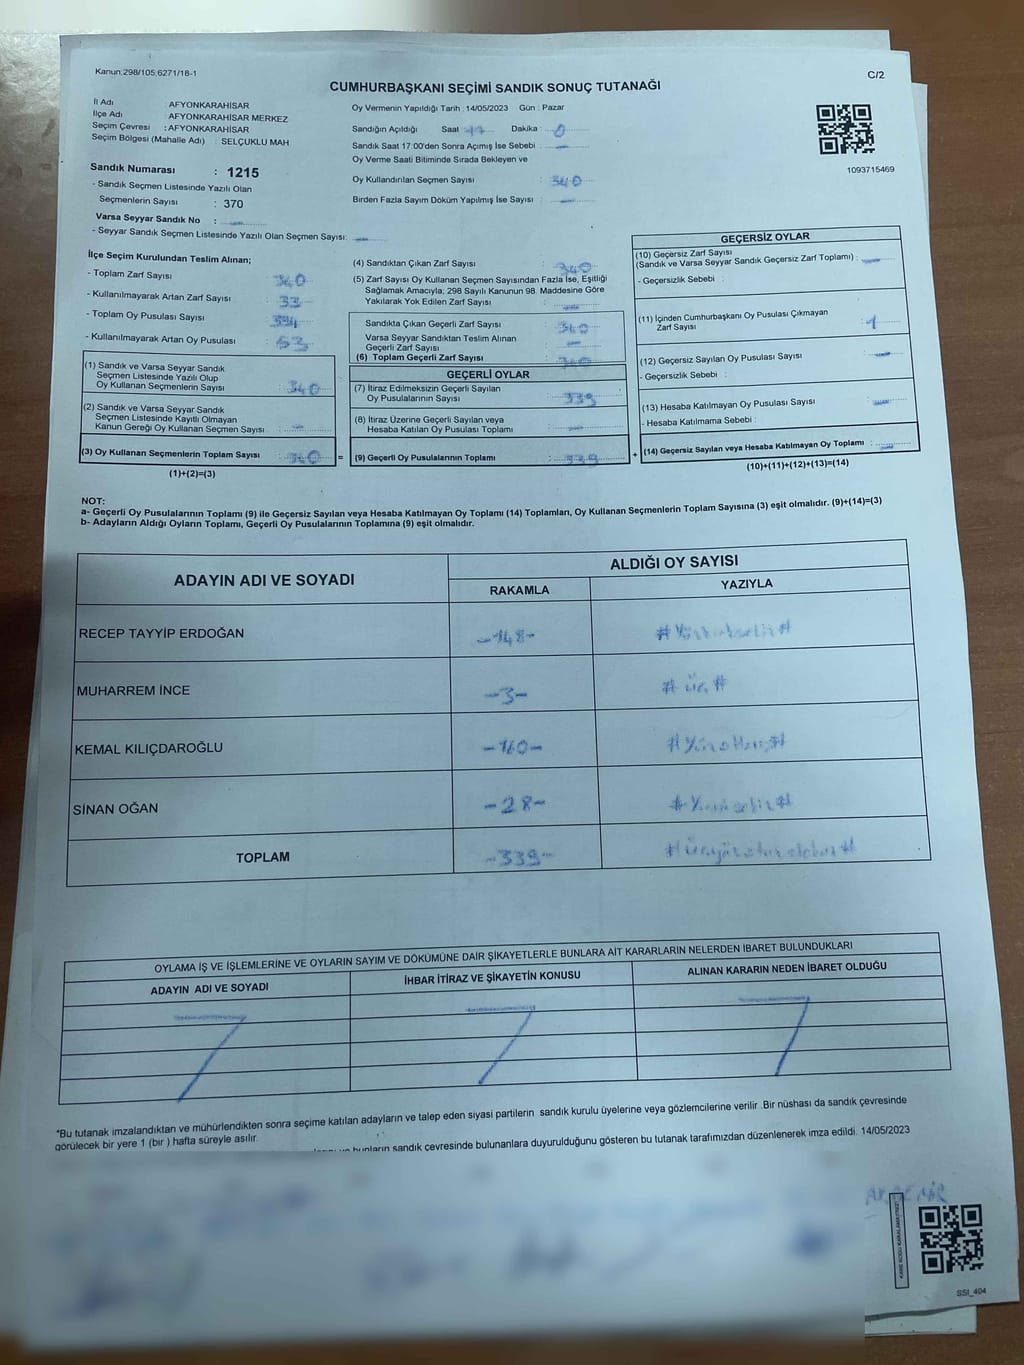 Kanun:298/105;6271/18-1
C/2
CUMHURBAŞKANI SEÇİMİ SANDIK SONUÇ TUTANAĞI
İl Adı AFYONKARAHİSAR
İlçe Adı AFYONKARAHİSAR MERKEZ
Seçim Çevresi : AFYONKARAHİSAR
Seçim Bölgesi (Mahalle Adı) : SELÇUKLU MAH.
Sandık Numarası : 1215
- Sandık Seçmen Listesinde Yazılı Olan
Seçmenlerin Sayısı : 370
Varsa Seyyar Sandık No : —
- Seyyar Sandık Seçmen Listesinde Yazılı Olan Seçmen Sayısı: —
Oy Vermenin Yapıldığı Tarih : 14/05/2023 Gün : Pazar
Sandığın Açıldığı Saat : 17 Dakika : 0
Sandık Saat 17:00'den Sonra Açımış İse Sebebi : —
Oy Verme Saati Bitiminde Sırada Bekleyen ve
Oy Kullandırılan Seçmen Sayısı : 340
Birden Fazla Sayım Döküm Yapılmış İse Sayısı : —
1093715469
İlçe Seçim Kurulundan Teslim Alınan;
- Toplam Zarf Sayısı
- Kullanılmayarak Artan Zarf Sayısı : 33
- Toplam Oy Pusulası Sayısı
- Kullanılmayarak Artan Oy Pusulası
(1) Sandık ve Varsa Seyyar Sandık
Seçmen Listesinde Yazılı Olup
Oy Kullanan Seçmenlerin Sayısı : 340
(2) Sandık ve Varsa Seyyar Sandık
Seçmen Listesinde Kayıtlı Olmayan
Kanun Gereği Oy Kullanan Seçmen Sayısı : —
(3) Oy Kullanan Seçmenlerin Toplam Sayısı : 340 =
(1)+(2)=(3)
(4) Sandıktan Çıkan Zarf Sayısı : 340
(5) Zarf Sayısı Oy Kullanan Seçmen Sayısından Fazla İse, Eşitliği
Sağlamak Amacıyla; 298 Sayılı Kanunun 98. Maddesine Göre
Yakılarak Yok Edilen Zarf Sayısı : —
Sandıkta Çıkan Geçerli Zarf Sayısı : 340
Varsa Seyyar Sandıktan Teslim Alınan
Geçerli Zarf Sayısı : —
(6) Toplam Geçerli Zarf Sayısı : 340
GEÇERLİ OYLAR
(7) İtiraz Edilmeksizin Geçerli Sayılan
Oy Pusulalarının Sayısı : 339
(8) İtiraz Üzerine Geçerli Sayılan veya
Hesaba Katılan Oy Pusulası Toplamı : —
(9) Geçerli Oy Pusulalarının Toplamı : 339 +
GEÇERSİZ OYLAR
(10) Geçersiz Zarf Sayısı
(Sandık ve Varsa Seyyar Sandık Geçersiz Zarf Toplamı) : —
- Geçersizlik Sebebi :
(11) İçinden Cumhurbaşkanı Oy Pusulası Çıkmayan
Zarf Sayısı : 1
(12) Geçersiz Sayılan Oy Pusulası Sayısı : —
- Geçersizlik Sebebi :
(13) Hesaba Katılmayan Oy Pusulası Sayısı : —
- Hesaba Katılmama Sebebi :
(14) Geçersiz Sayılan veya Hesaba Katılmayan Oy Toplamı : —
(10)+(11)+(12)+(13)=(14)
NOT:
a- Geçerli Oy Pusulalarının Toplamı (9) ile Geçersiz Sayılan veya Hesaba Katılmayan Oy Toplamı (14) Toplamları, Oy Kullanan Seçmenlerin Toplam Sayısına (3) eşit olmalıdır. (9)+(14)=(3)
b- Adayların Aldığı Oyların Toplamı, Geçerli Oy Pusulalarının Toplamına (9) eşit olmalıdır.
ADAYIN ADI VE SOYADI
ALDIĞI OY SAYISI
RAKAMLA YAZIYLA
RECEP TAYYİP ERDOĞAN -148-
MUHARREM İNCE -3- # Üç #
KEMAL KILIÇDAROĞLU -160- # Yüzaltmış #
SİNAN OĞAN -28- # Yirmisekiz #
TOPLAM -339- # Üçyüzotuzdokuz #
OYLAMA İŞ VE İŞLEMLERİNE VE OYLARIN SAYIM VE DÖKÜMÜNE DAİR ŞİKAYETLERLE BUNLARA AİT KARARLARIN NELERDEN İBARET BULUNDUKLARI
ADAYIN ADI VE SOYADI İHBAR İTİRAZ VE ŞİKAYETİN KONUSU ALINAN KARARIN NEDEN İBARET OLDUĞU
*Bu tutanak imzalandıktan ve mühürlendikten sonra seçime katılan adayların ve talep eden siyasi partilerin sandık kurulu üyelerine veya gözlemcilerine verilir .Bir nüshası da sandık çevresinde
görülecek bir yere 1 (bir ) hafta süreyle asılır.
bunların sandık çevresinde bulunanlara duyurulduğunu gösteren bu tutanak tarafımızdan düzenlenerek imza edildi. 14/05/2023
SSI_404